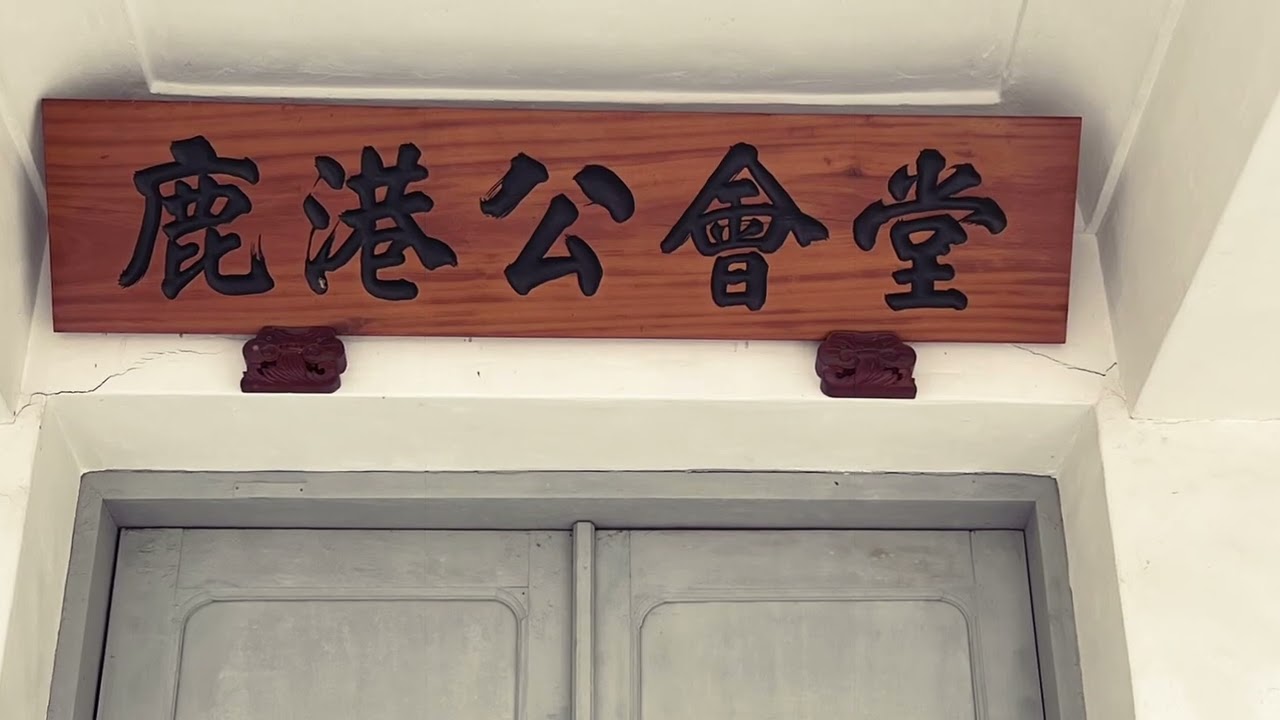 鹿港公會堂